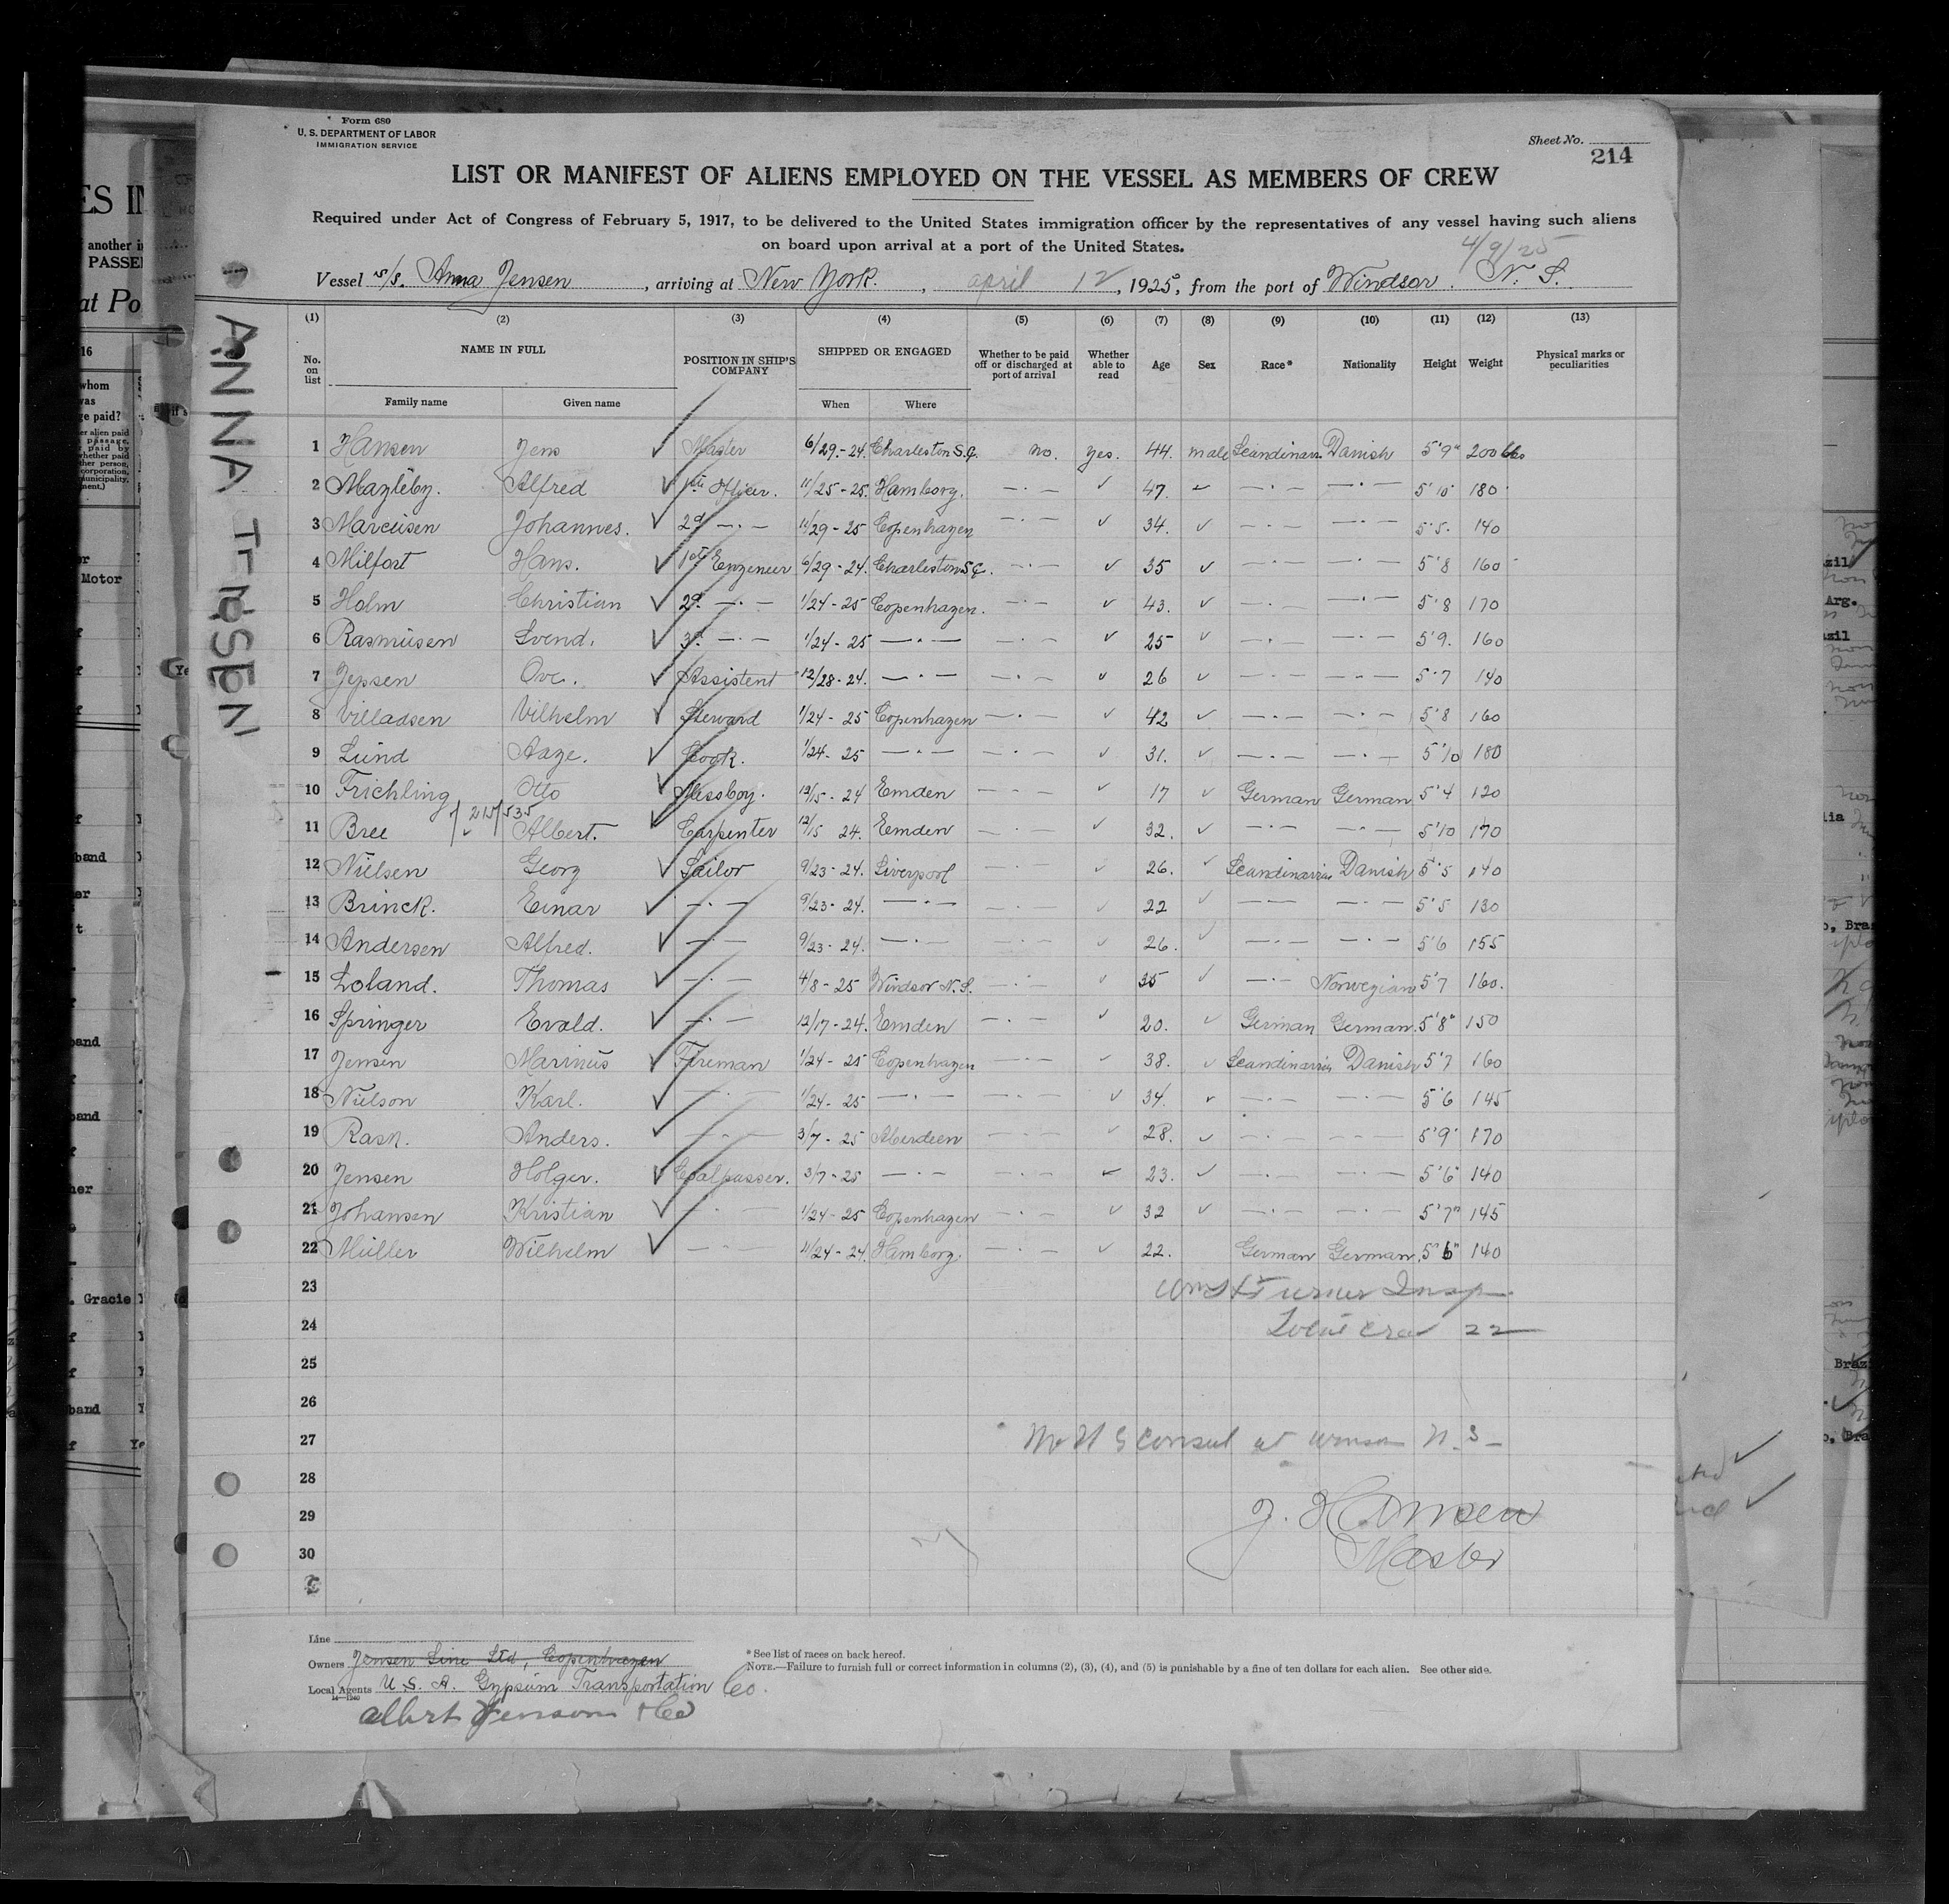 Form 680
U. S. DEPARTMENT OF LABOR
IMMIGRATION SERVICE
Sheet No.
214
LIST OR MANIFEST OF ALIENS EMPLOYED ON THE VESSEL AS MEMBERS OF CREW
Required under Act of Congress of February 5, 1917, to be delivered to the United States immigration officer by the representatives of any vessel having such aliens
on board upon arrival at a port of the United States.
4/9/25
Vessel s/s. Anna Jensen, arriving at New York., april 12, 1925, from the port of Windsor. N. S.
ANNA JENSEN
(1) (2) (3) (4) (5) (6) (7) (8) (9) (10) (11) (12) (13)
No. on list NAME IN FULL POSITION IN SHIP'S COMPANY SHIPPED OR ENGAGED Whether to be paid off or discharged at port of arrival Whether able to read Age Sex Race* Nationality Height Weight Physical marks or peculiarities
Family name Given name When Where
1 Hansen Jens ✓ Master 6/29-24. Charleston S.C. no. yes. 44. male Scandinav. Danish 5'9" 200 lbs
2 Mazleby. Alfred ✓ 1ste Officer. 11/25-25. Hamborg. —·— ✓ 47. ✓ —·— —·— 5'10 180
3 Marcusen Johannes. ✓ 2d —·— 11/29-25 Copenhagen —·— ✓ 34. ✓ —·— —·— 5'5. 140
4 Milfort Hans. ✓ 1ste Engeneer 6/29-24. Charleston S.C. —·— ✓ 35 ✓ —·— —·— 5'8 160
5 Holm Christian ✓ 2d. —·— 1/24-25 Copenhagen. —·— ✓ 43. ✓ —·— —·— 5'8 170
6 Rasmusen Svend. ✓ 3d. —·— 1/24-25 —·— —·— ✓ 25 ✓ —·— —·— 5'9. 160
7 Jepsen Ove. ✓ Assistent 12/28-24. —·— —·— ✓ 26 ✓ —·— —·— 5'7 140
8 Villadsen Vilhelm ✓ Steward 1/24-25 Copenhagen —·— ✓ 42 ✓ —·— —·— 5'8 160
9 Lund Aage. ✓ Cook. 1/24-25 —·— —·— ✓ 31. ✓ —·— —·— 5'10 180
10 Frichling Otto ✓ Messboy. 12/15-24 Emden —·— ✓ 17 ✓ German German 5'4 120
215/535
11 Bree Albert. ✓ Carpenter 12/15 24. Emden —·— ✓ 32. ✓ —·— —·— 5'10 170
12 Nielsen Georg ✓ Sailor 9/23-24. Liverpool —·— ✓ 26. ✓ Scandinavian Danish 5'5 140
13 Brinck. Einar ✓ —·— 9/23-24. —·— —·— ✓ 22 ✓ —·— —·— 5'5 130
14 Andersen Alfred. ✓ —·— 9/23-24. —·— —·— ✓ 26. ✓ —·— —·— 5'6 155
15 Loland. Thomas ✓ —·— 4/8-25 Windsor N.S. —·— ✓ 35 ✓ —·— Norwegian 5'7 160.
16 Springer Evald. ✓ —·— 12/17-24. Emden —·— ✓ 20. ✓ German German. 5'8" 150
17 Jensen Marinus ✓ Fireman 1/24-25 Copenhagen —·— ✓ 38. ✓ Scandinavian Danish 5'7 160
18 Nielson Karl. ✓ —·— 1/24-25 —·— —·— ✓ 34. ✓ —·— —·— 5'6 145
19 Rask. Anders. ✓ —·— 3/7-25 Aberdeen —·— ✓ 28. ✓ —·— —·— 5'9" 170
20 Jensen Holger. ✓ Coalpasser. 3/7-25 —·— —·— ✓ 23. ✓ —·— —·— 5'6" 140
21 Johansen Kristian ✓ —·— 1/24-25 Copenhagen —·— ✓ 32 ✓ —·— —·— 5'7" 145
22 Müller Wilhelm ✓ —·— 11/24-24. Hamborg. —·— ✓ 22. German German. 5'6" 140
23 Turner Insp
24 Total crew 22
25
26
27 No U S Consul at N. S
28
29 J. Hansen
30 Master
Line
Owners Jensen Line Ltd, Copenhagen
Local Agents U. S. A. Gypsum Transportation Co.
14—1240
albert Jenson & Co
* See list of races on back hereof.
NOTE.—Failure to furnish full or correct information in columns (2), (3), (4), and (5) is punishable by a fine of ten dollars for each alien. See other side.